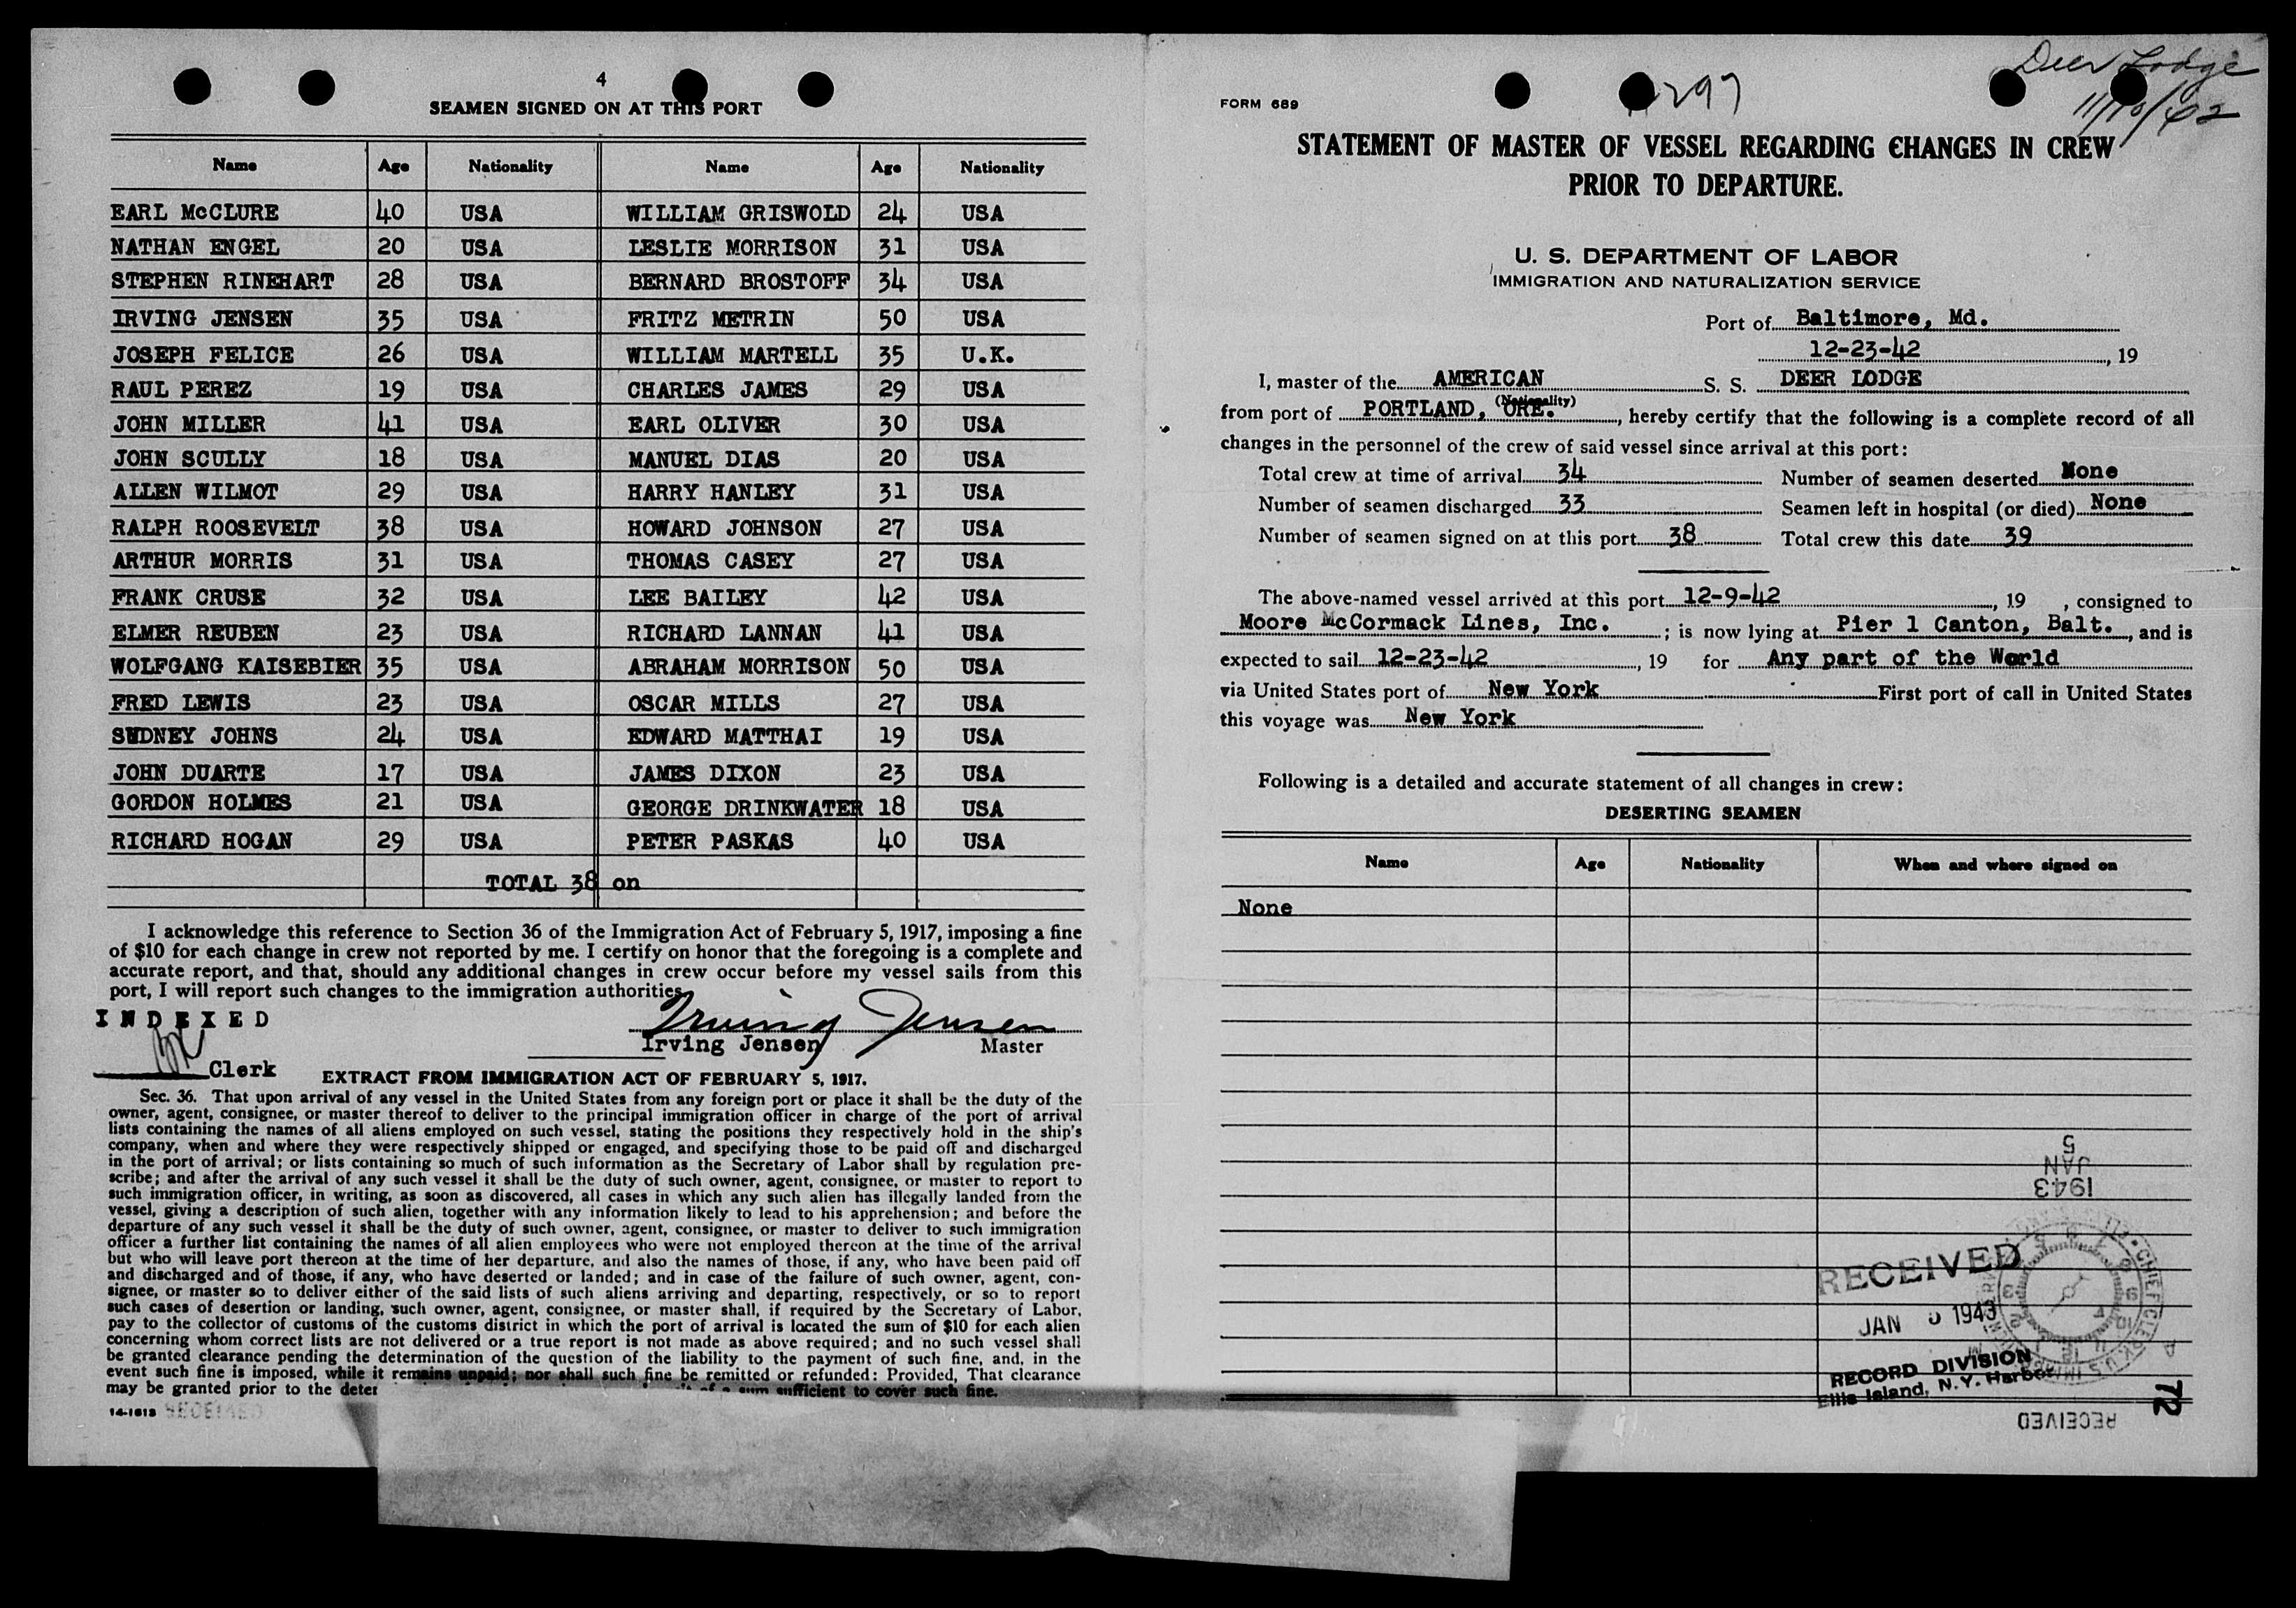 4
SEAMEN SIGNED ON AT THIS PORT
Name Age Nationality Name Age Nationality
EARL McCLURE 40 USA WILLIAM GRISWOLD 24 USA
NATHAN ENGEL 20 USA LESLIE MORRISON 31 USA
STEPHEN RINEHART 28 USA BERNARD BROSTOFF 34 USA
IRVING JENSEN 35 USA FRITZ METRIN 50 USA
JOSEPH FELICE 26 USA WILLIAM MARTELL 35 U.K.
RAUL PEREZ 19 USA CHARLES JAMES 29 USA
JOHN MILLER 41 USA EARL OLIVER 30 USA
JOHN SCULLY 18 USA MANUEL DIAS 20 USA
ALLEN WILMOT 29 USA HARRY HANLEY 31 USA
RALPH ROOSEVELT 38 USA HOWARD JOHNSON 27 USA
ARTHUR MORRIS 31 USA THOMAS CASEY 27 USA
FRANK CRUSE 32 USA LEE BAILEY 42 USA
ELMER REUBEN 23 USA RICHARD LANNAN 41 USA
WOLFGANG KAISEBIER 35 USA ABRAHAM MORRISON 50 USA
FRED LEWIS 23 USA OSCAR MILLS 27 USA
SYDNEY JOHNS 24 USA EDWARD MATTHAI 19 USA
JOHN DUARTE 17 USA JAMES DIXON 23 USA
GORDON HOLMES 21 USA GEORGE DRINKWATER 18 USA
RICHARD HOGAN 29 USA PETER PASKAS 40 USA
TOTAL 38 on
I acknowledge this reference to Section 36 of the Immigration Act of February 5, 1917, imposing a fine
of $10 for each change in crew not reported by me. I certify on honor that the foregoing is a complete and
accurate report, and that, should any additional changes in crew occur before my vessel sails from this
port, I will report such changes to the immigration authorities.
INDEXED
Irving Jensen
Irving Jensen Master
Clerk
EXTRACT FROM IMMIGRATION ACT OF FEBRUARY 5, 1917.
Sec. 36. That upon arrival of any vessel in the United States from any foreign port or place it shall be the duty of the
owner, agent, consignee, or master thereof to deliver to the principal immigration officer in charge of the port of arrival
lists containing the names of all aliens employed on such vessel, stating the positions they respectively hold in the ship's
company, when and where they were respectively shipped or engaged, and specifying those to be paid off and discharged
in the port of arrival; or lists containing so much of such information as the Secretary of Labor shall by regulation pre-
scribe; and after the arrival of any such vessel it shall be the duty of such owner, agent, consignee, or master to report to
such immigration officer, in writing, as soon as discovered, all cases in which any such alien has illegally landed from the
vessel, giving a description of such alien, together with any information likely to lead to his apprehension; and before the
departure of any such vessel it shall be the duty of such owner, agent, consignee, or master to deliver to such immigration
officer a further list containing the names of all alien employees who were not employed thereon at the time of the arrival
but who will leave port thereon at the time of her departure, and also the names of those, if any, who have been paid off
and discharged and of those, if any, who have deserted or landed; and in case of the failure of such owner, agent, con-
signee, or master so to deliver either of the said lists of such aliens arriving and departing, respectively, or so to report
such cases of desertion or landing, such owner, agent, consignee, or master shall, if required by the Secretary of Labor,
pay to the collector of customs of the customs district in which the port of arrival is located the sum of $10 for each alien
concerning whom correct lists are not delivered or a true report is not made as above required; and no such vessel shall
be granted clearance pending the determination of the question of the liability to the payment of such fine, and, in the
event such fine is imposed, while it remains unpaid; nor shall such fine be remitted or refunded: Provided, That clearance
may be granted prior to the deter of a sum sufficient to cover such fine.
14-1613 RECEIVED
Deer Lodge
11/10/42
FORM 689
STATEMENT OF MASTER OF VESSEL REGARDING CHANGES IN CREW
PRIOR TO DEPARTURE.
U. S. DEPARTMENT OF LABOR
IMMIGRATION AND NATURALIZATION SERVICE
Port of Baltimore, Md.
12-23-42, 19
I, master of the AMERICAN S. S. DEER LODGE
(Nationality)
from port of PORTLAND, ORE., hereby certify that the following is a complete record of all
changes in the personnel of the crew of said vessel since arrival at this port:
Total crew at time of arrival 34 Number of seamen deserted None
Number of seamen discharged 33 Seamen left in hospital (or died) None
Number of seamen signed on at this port 38 Total crew this date 39
The above-named vessel arrived at this port 12-9-42, 19 , consigned to
Moore McCormack Lines, Inc.; is now lying at Pier 1 Canton, Balt., and is
expected to sail 12-23-42, 19 for Any part of the World
via United States port of New York First port of call in United States
this voyage was New York
Following is a detailed and accurate statement of all changes in crew:
DESERTING SEAMEN
Name Age Nationality When and where signed on
None
5
JAN
1943
RECEIVED
JAN 5 1943
RECORD DIVISION
Ellis Island, N.Y. Harbor
72
RECEIVED